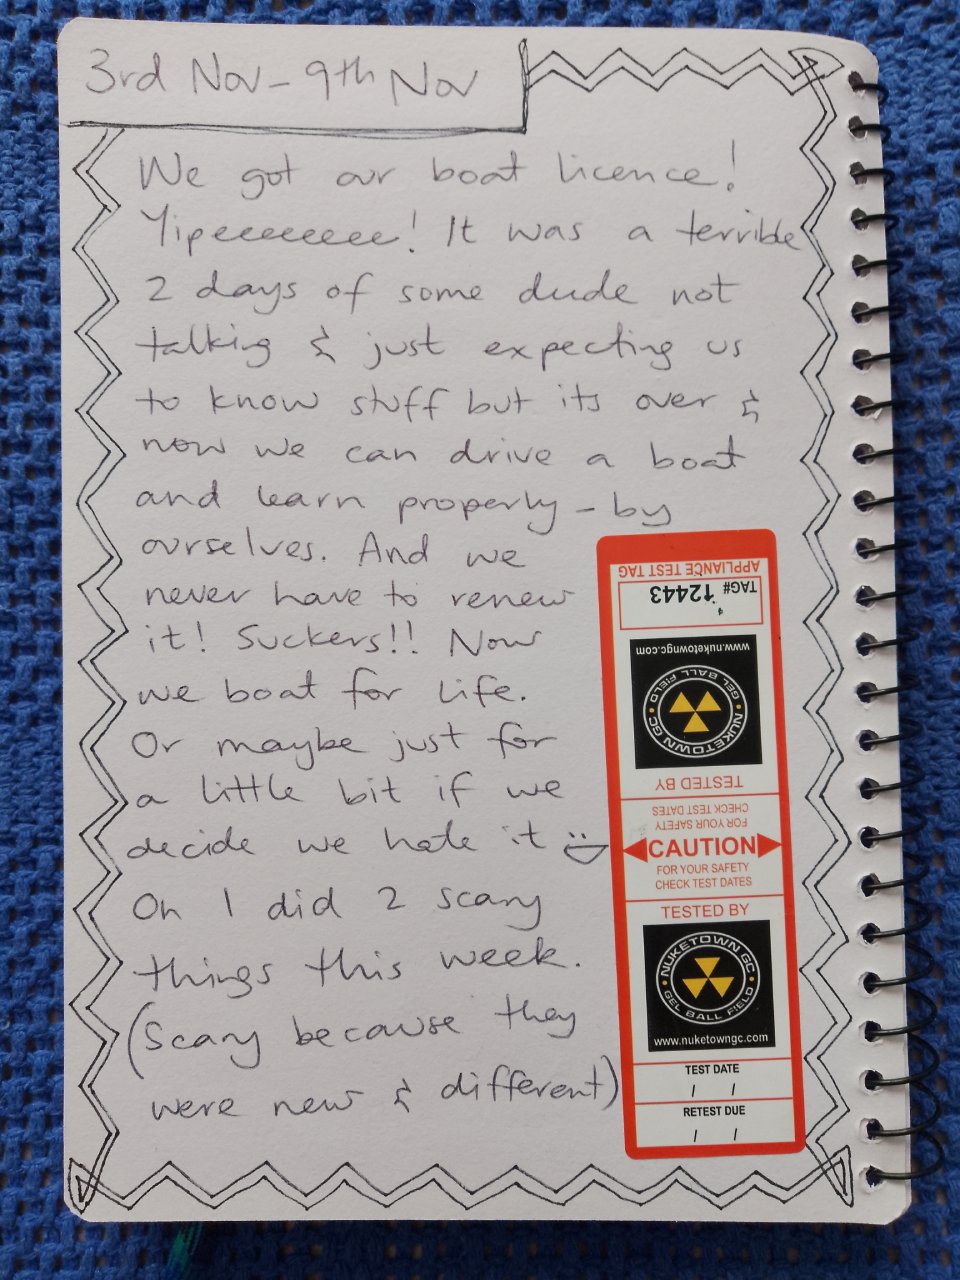 3rd Nov - 9th Nov
We got our boat licence!
Yipeeeeeeeee! It was a terrible
2 days of some dude not
talking & just expecting us
to know stuff but its over &
now we can drive a boat
and learn properly - by
ourselves. And we
never have to renew
it! Suckers!! Now
we boat for life.
Or maybe just for
a little bit if we
decide we hate it :)
Oh I did 2 scary
things this week.
(Scary because they
were new & different)
APPLIANCE TEST TAG
TAG# 12443
www.nuketowngc.com
NUKETOWN GC
GEL BALL FIELD
TESTED BY
FOR YOUR SAFETY
CHECK TEST DATES
CAUTION
FOR YOUR SAFETY
CHECK TEST DATES
TESTED BY
NUKETOWN GC
GEL BALL FIELD
www.nuketowngc.com
TEST DATE
/ /
RETEST DUE
/ /